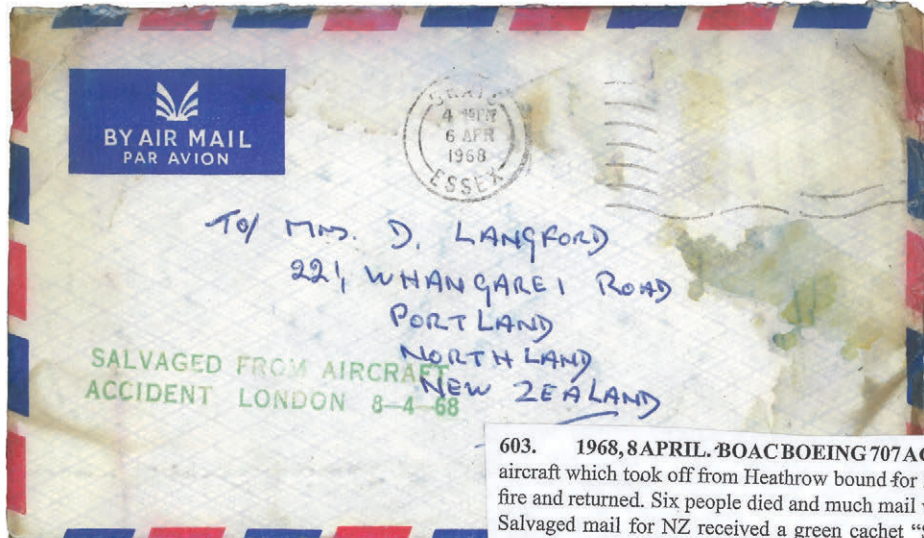 BY AIR MAIL
PAR AVION
4
6 APR
1968
ESSEX
TO/ MRS. D. LANGFORD
221, WHANGAREI ROAD
PORTLAND
NORTHLAND
NEW ZEALAND
SALVAGED FROM AIRCRAFT
ACCIDENT LONDON 8-4-68
603. 1968, 8 APRIL. BOAC BOEING 707
aircraft which took off from Heathrow bound for
fire and returned. Six people died and much mail
Salvaged mail for NZ received a green cachet